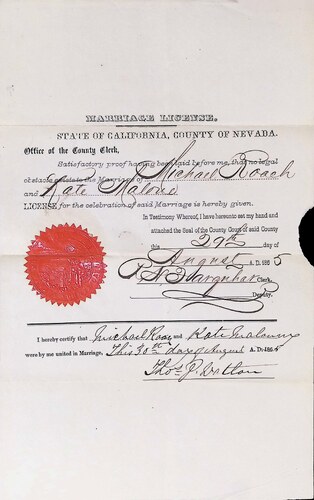 MARRIAGE LICENSE.
STATE OF CALIFORNIA, COUNTY OF NEVADA.
Office of the County Clerk,
Satisfactory proof having been laid before me, that no legal
obstacle exists to the Marriage of Michael Roach
and Kate Malone
LICENSE for the celebration of said Marriage is hereby given.
In Testimony Whereof, I have hereunto set my hand and
attached the Seal of the County Court of said County
this 29th day of
August A. D. 1865
Farquhar Clerk,
Deputy.
I hereby certify that Michael Roac and Kate Malony
were by me united in Marriage, This 30th day of August A. D. 1865
Thos J. Dalton